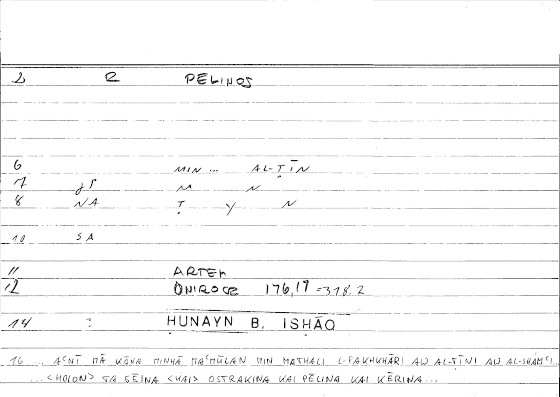 2 R PĒLINOS
6 MIN ... AL-ṬĪN
7 gP M N
8 NA Ṭ Y N
10 SA
11 ARTEM
12 ONIROCR 176,19 = 318.2
14 : ḤUNAYN B. ISḤĀQ
16 ... AʿNĪ MĀ KĀNA MINHĀ MAʿMŪLAN MIN MATHALI L-FAKHKHĀRI AW AL-ṬĪNI AW AL-SHAMʿI...
...<HOION> TA GĒINA <KAI> OSTRAKINA KAI PĒLINA KAI KĒRINA...